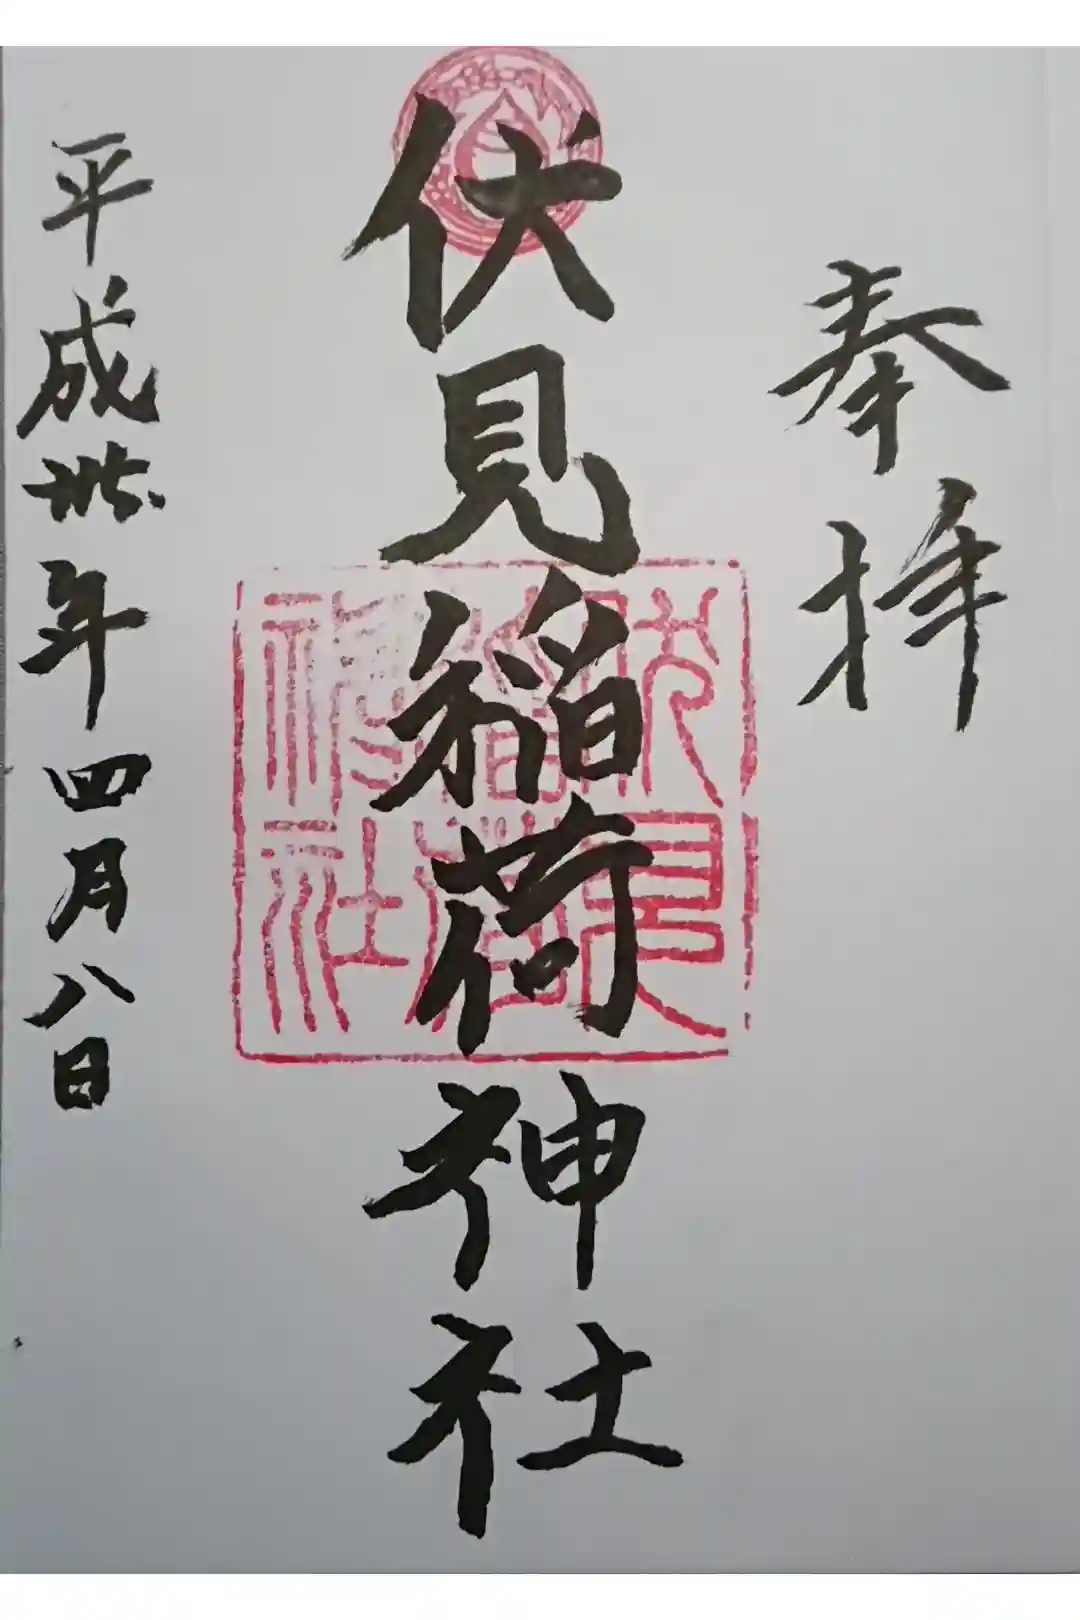 奉拝
伏見稲荷神社
伏見
稲荷
神社
平成卅年四月八日